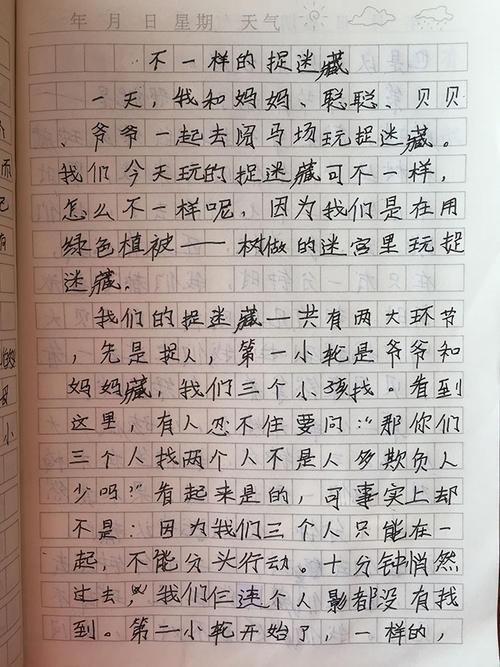 年 月 日 星期 天气
不一样的捉迷藏
一天，我和妈妈、聪聪、贝贝
、爷爷一起去阅马场玩捉迷藏。
我们今天玩的捉迷藏可不一样，
怎么不一样呢，因为我们是在用
绿色植被——树做的迷宫里玩捉
迷藏。
我们的捉迷藏一共有两大环节
，先是捉人，第一小轮是爷爷和
妈妈藏，我们三个小孩找。看到
这里，有人忍不住要问：“那你们
三个人找两个人不是人多欺负人
少吗？”看起来是的，可事实上却
不是：因为我们三个人只能在一
起，不能分头行动。十分钟悄然
过去，我们仨连个人影都没有找
到。第二小轮开始了，一样的，